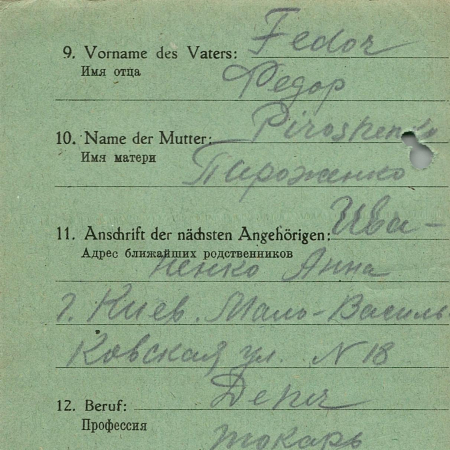 9. Vorname des Vaters: Fedor
Имя отца
Федор
10. Name der Mutter: Piroshenko
Имя матери
Пироженко
11. Anschrift der nächsten Angehörigen: Ива-
Адрес ближайших родственников
ненко Анна
г. Киев. Мало-Василь-
ковская ул. N 18
12. Beruf:
Профессия
токарь